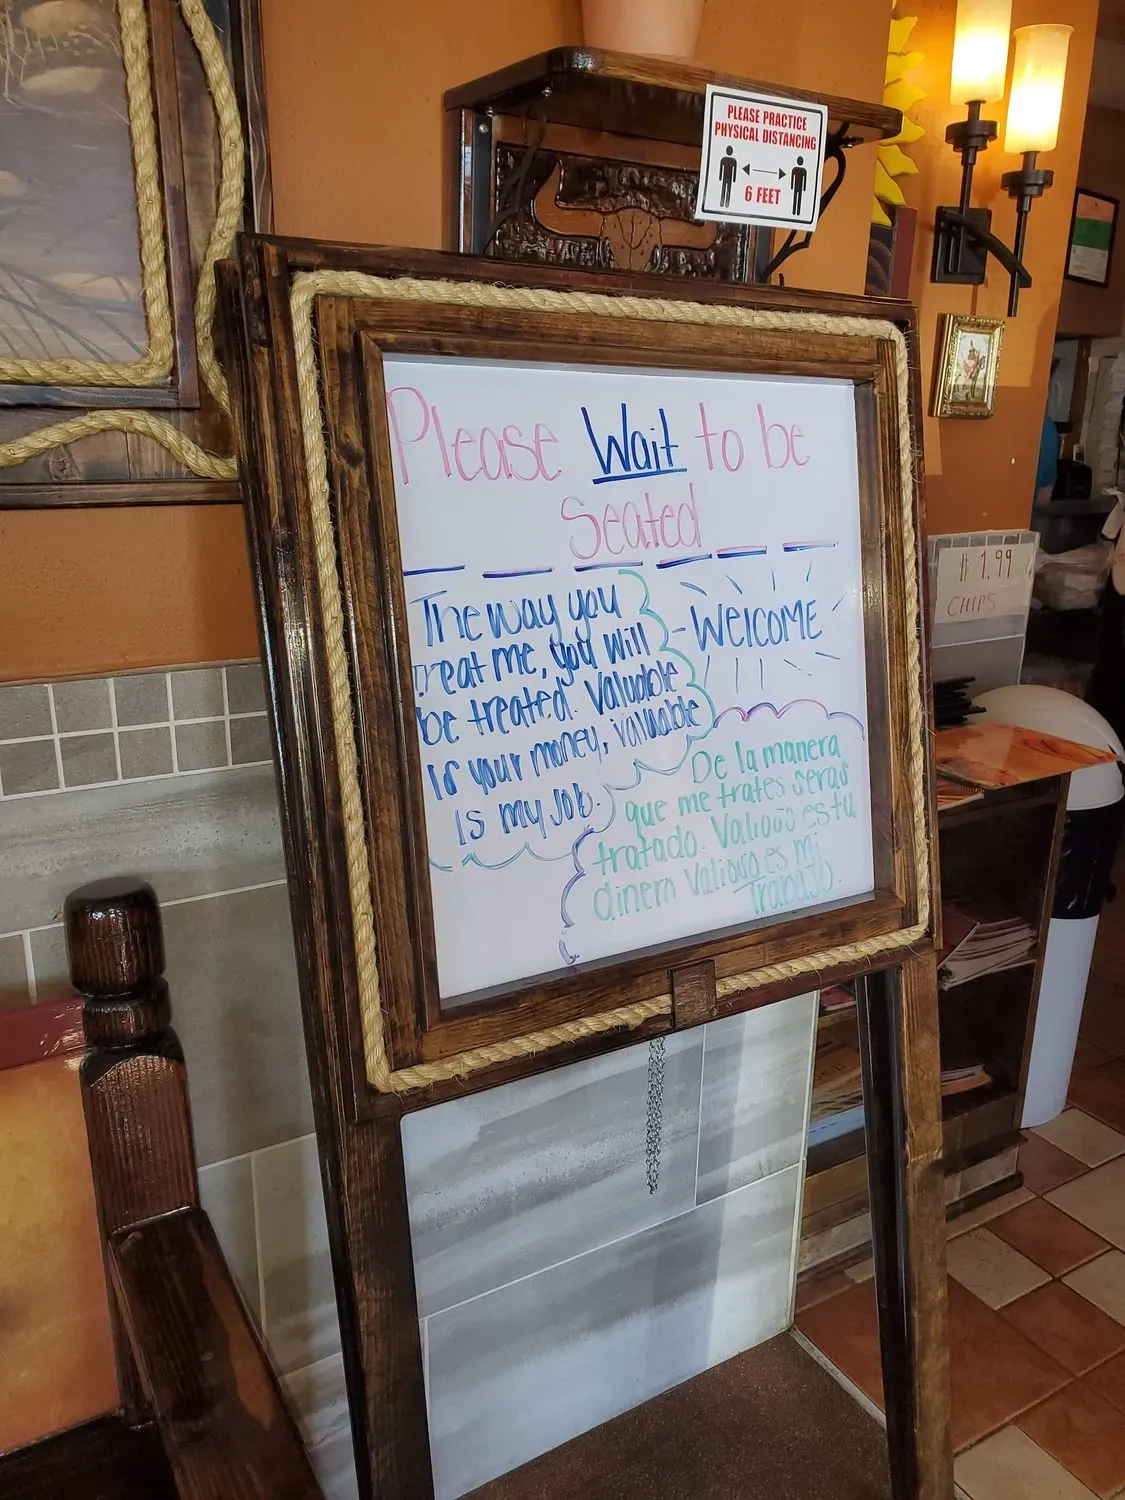 PLEASE PRACTICE
PHYSICAL DISTANCING
6 FEET
Please Wait to be
Seated
The way you
treat me, you will
be treated. Valuable
Is your money, valuable
Is my job.
-WELCOME
De la manera
que me trates seras
tratado. Valioso es tu
dinero Valioso es mi
Trabajo.
$1.99
CHIPS